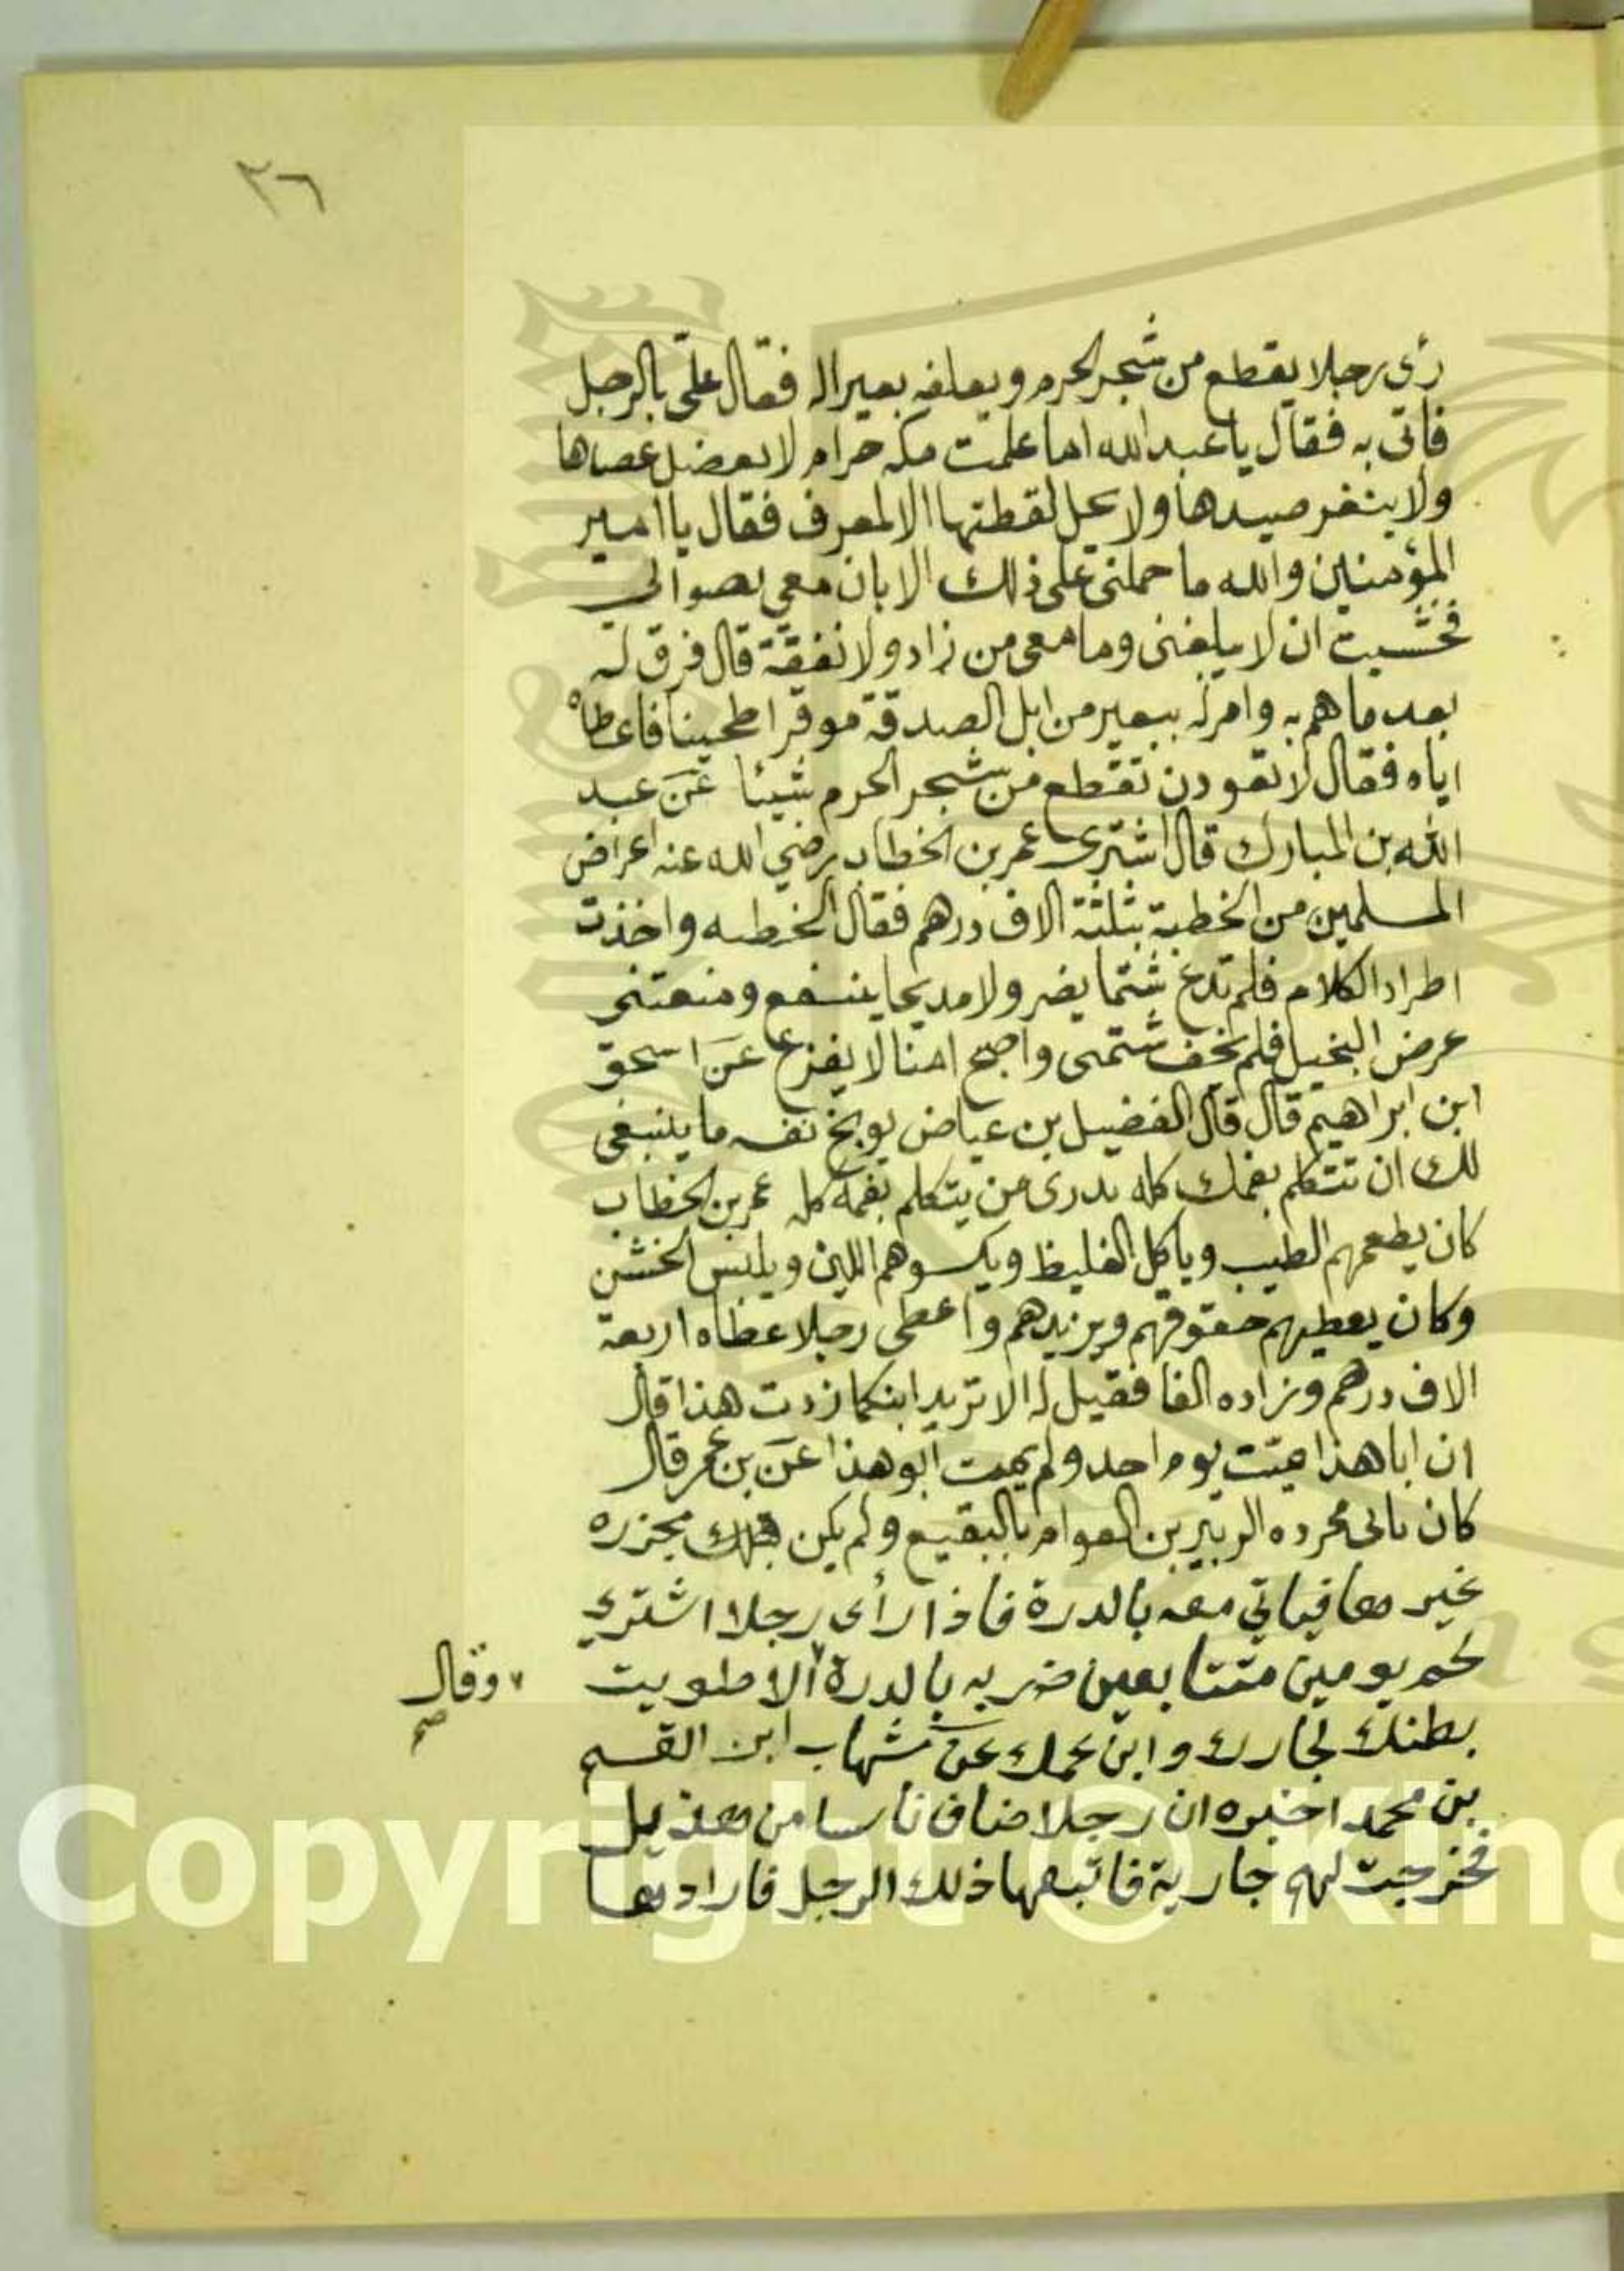 ٢٦
رأى رجلا يقطع من شجر الحرم ويعلفه بعيرا له فقال علي بالرجل
فاتى به فقال يا عبد الله اما علمت مكه حرام لا يعضد عصاها
ولا ينفر صيدها ولا يحل لقطتها الا لمعرف فقال يا امير
المؤمنين والله ما حملني على ذلك الا بان معي نضوا لي
فخشيت ان لا يبلغني وما معي من زاد ولا نفقة قال فرق له
بعد ما هم به وامر له ببعير من ابل الصدقة موقرا طحينا فاعطاه
اياه فقال لا تعودن تقطع من شجر الحرم شيئا عن عبد
الله بن المبارك قال اشترى عمر بن الخطاب رضي الله عنه اعراض
المسلمين من الخطية بثلثة الاف درهم فقال الخطيه واخذت
اطراد الكلام فلم تدع شتما يضر ولا مديحا ينفع ومنعتني
عرض البخيل فلم يخف شتمى واصبح امنا لا يفزع عن اسحق
ابن ابراهيم قال قال الفضيل بن عياض يوبخ نفسه ما ينبغي
لك ان تتكلم بفمك كله تدرى من يتكلم بفمه كله عمر بن الخطاب
كان يطعمهم الطيب وياكل الغليظ ويكسوهم اللين ويلبس الخشن
وكان يعطيهم حقوقهم ويزيدهم واعطى رجلا عطاه اربعة
الاف درهم وزاده الفا فقيل له الا تزيد ابنك كما زدت هذا قال
ان ابا هذا ميت يوم احد ولم يمت ابو هذا عن بن عمر قال
كان ياتى مجزره الزبير بن العوام بالبقيع ولم يكن مجزره
غيرها فياتي معه بالدرة فاذا رأى رجلا اشترى
لحم يومين متتابعين ضربه بالدرة الا طويت
وقال صح
بطنك لجارك وابن عمك عن شهاب ابن القسم
بن محمد اخبره ان رجلا ضاف ناسا من هذيل
فخرجت لهم جارية فاتبعها ذلك الرجل فارادها